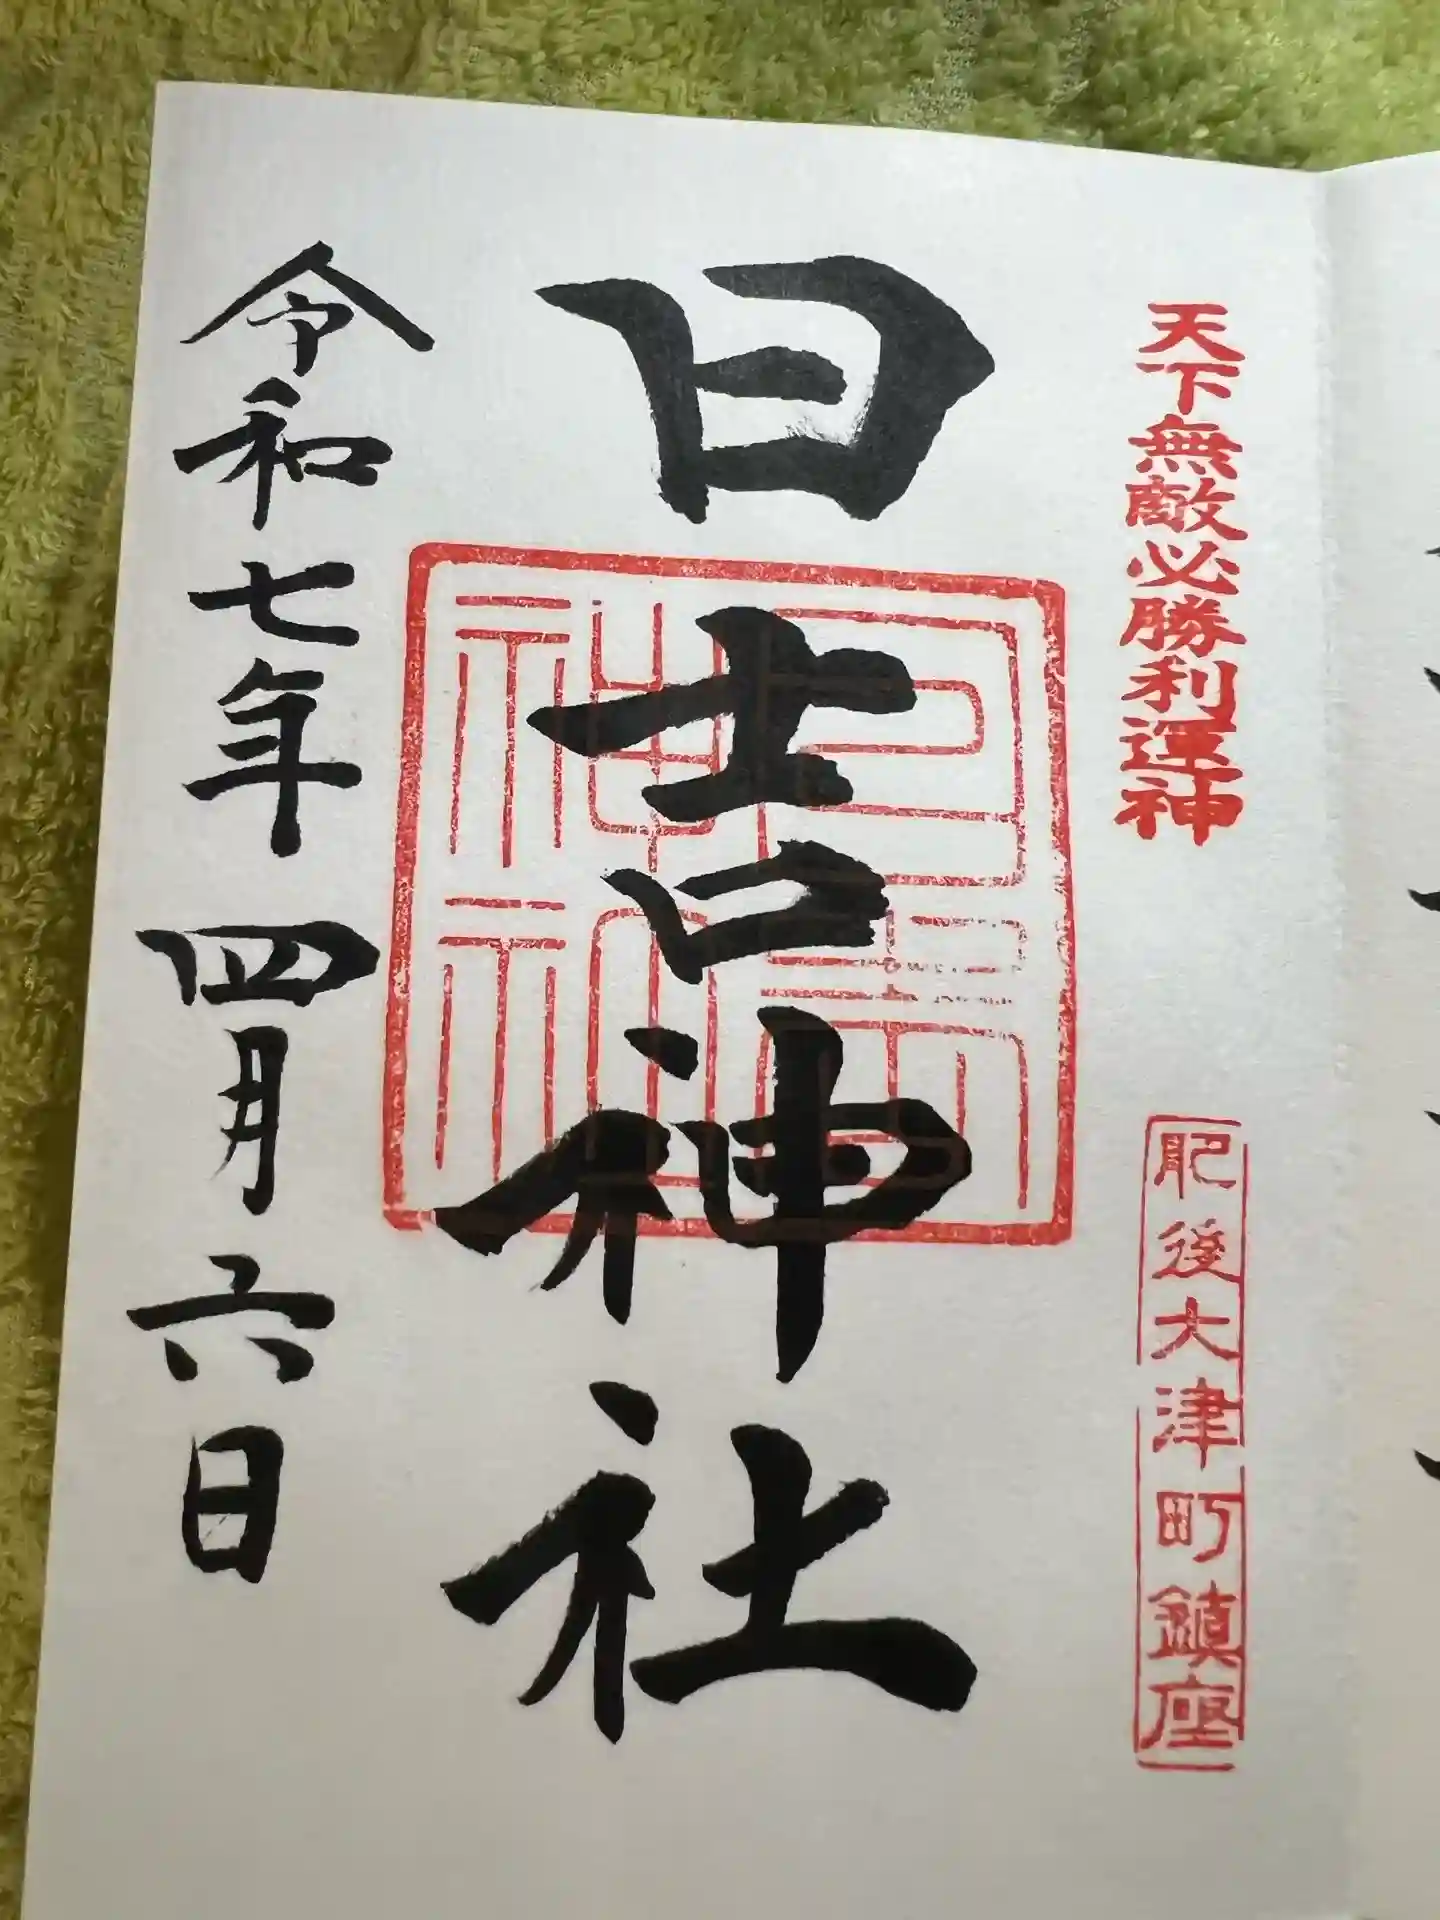 天下無敵必勝利運神
肥後大津町鎮座
日吉神社
日吉神社
令和七年四月六日